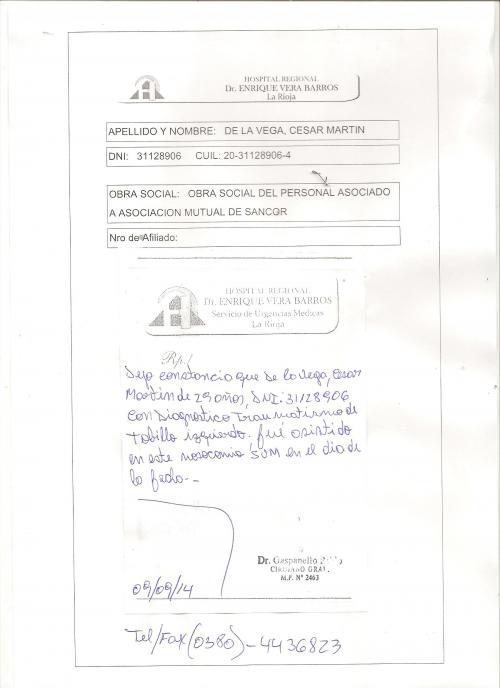 HOSPITAL REGIONAL
Dr. ENRIQUE VERA BARROS
La Rioja
APELLIDO Y NOMBRE: DE LA VEGA, CESAR MARTIN
DNI: 31128906 CUIL: 20-31128906-4
OBRA SOCIAL: OBRA SOCIAL DEL PERSONAL ASOCIADO
A ASOCIACION MUTUAL DE SANCOR
Nro de Afiliado:
HOSPITAL REGIONAL
Dr. ENRIQUE VERA BARROS
Servicio de Urgencias Medicas
La Rioja
Rp./
Dejo constancia que De la Vega, Cesar
Martin de 29 años, DNI: 31128906
con Diagnostico Traumatismo de
Tobillo izquierdo. fué asistido
en este nosocomio SUM en el dia de
la fecha.-
Dr. Gaspanello
CIRUJANO GRAL.
M.P. Nº 2463
09/09/14
Tel/Fax (0380)-4436823